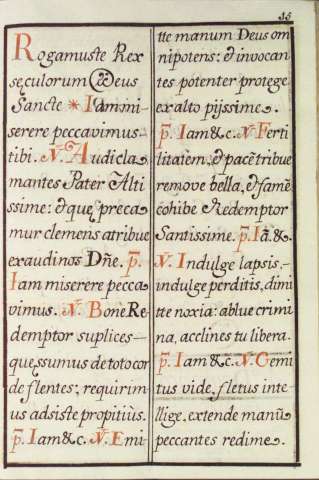 35
Rogamuste Rex
sęculorum Deus
Sancte * Iam mi-
serere peccavimus
tibi. V. Audi cla
mantes Pater Alti
ssime: & quę preca
mur clemens atribue
exaudi nos Dñe. p.
Iam miserere pecca
vimus. V. Bone Re
demptor suplices—
quęssumus de toto cor
de flentes: requirim
us adsiste propitiùs.
p. Iam &c. V. Emi
tte manum Deus om
nipotens: & invocan
tes potenter protege
ex alto pijssime.
p. Iam &c. V. Ferti
litatem: & pacẽ tribue
remove bella, & famẽ
cohibe Redemptor
Santissime. p. Iã. &.
V. Indulge lapsis,—
indulge perditis, dimi
tte noxia: ablue crimi
na, acclines tu libera.
p. Iam &c. V. Gemi
tus vide, fletus inte
llige, extende manũ
peccantes redime.